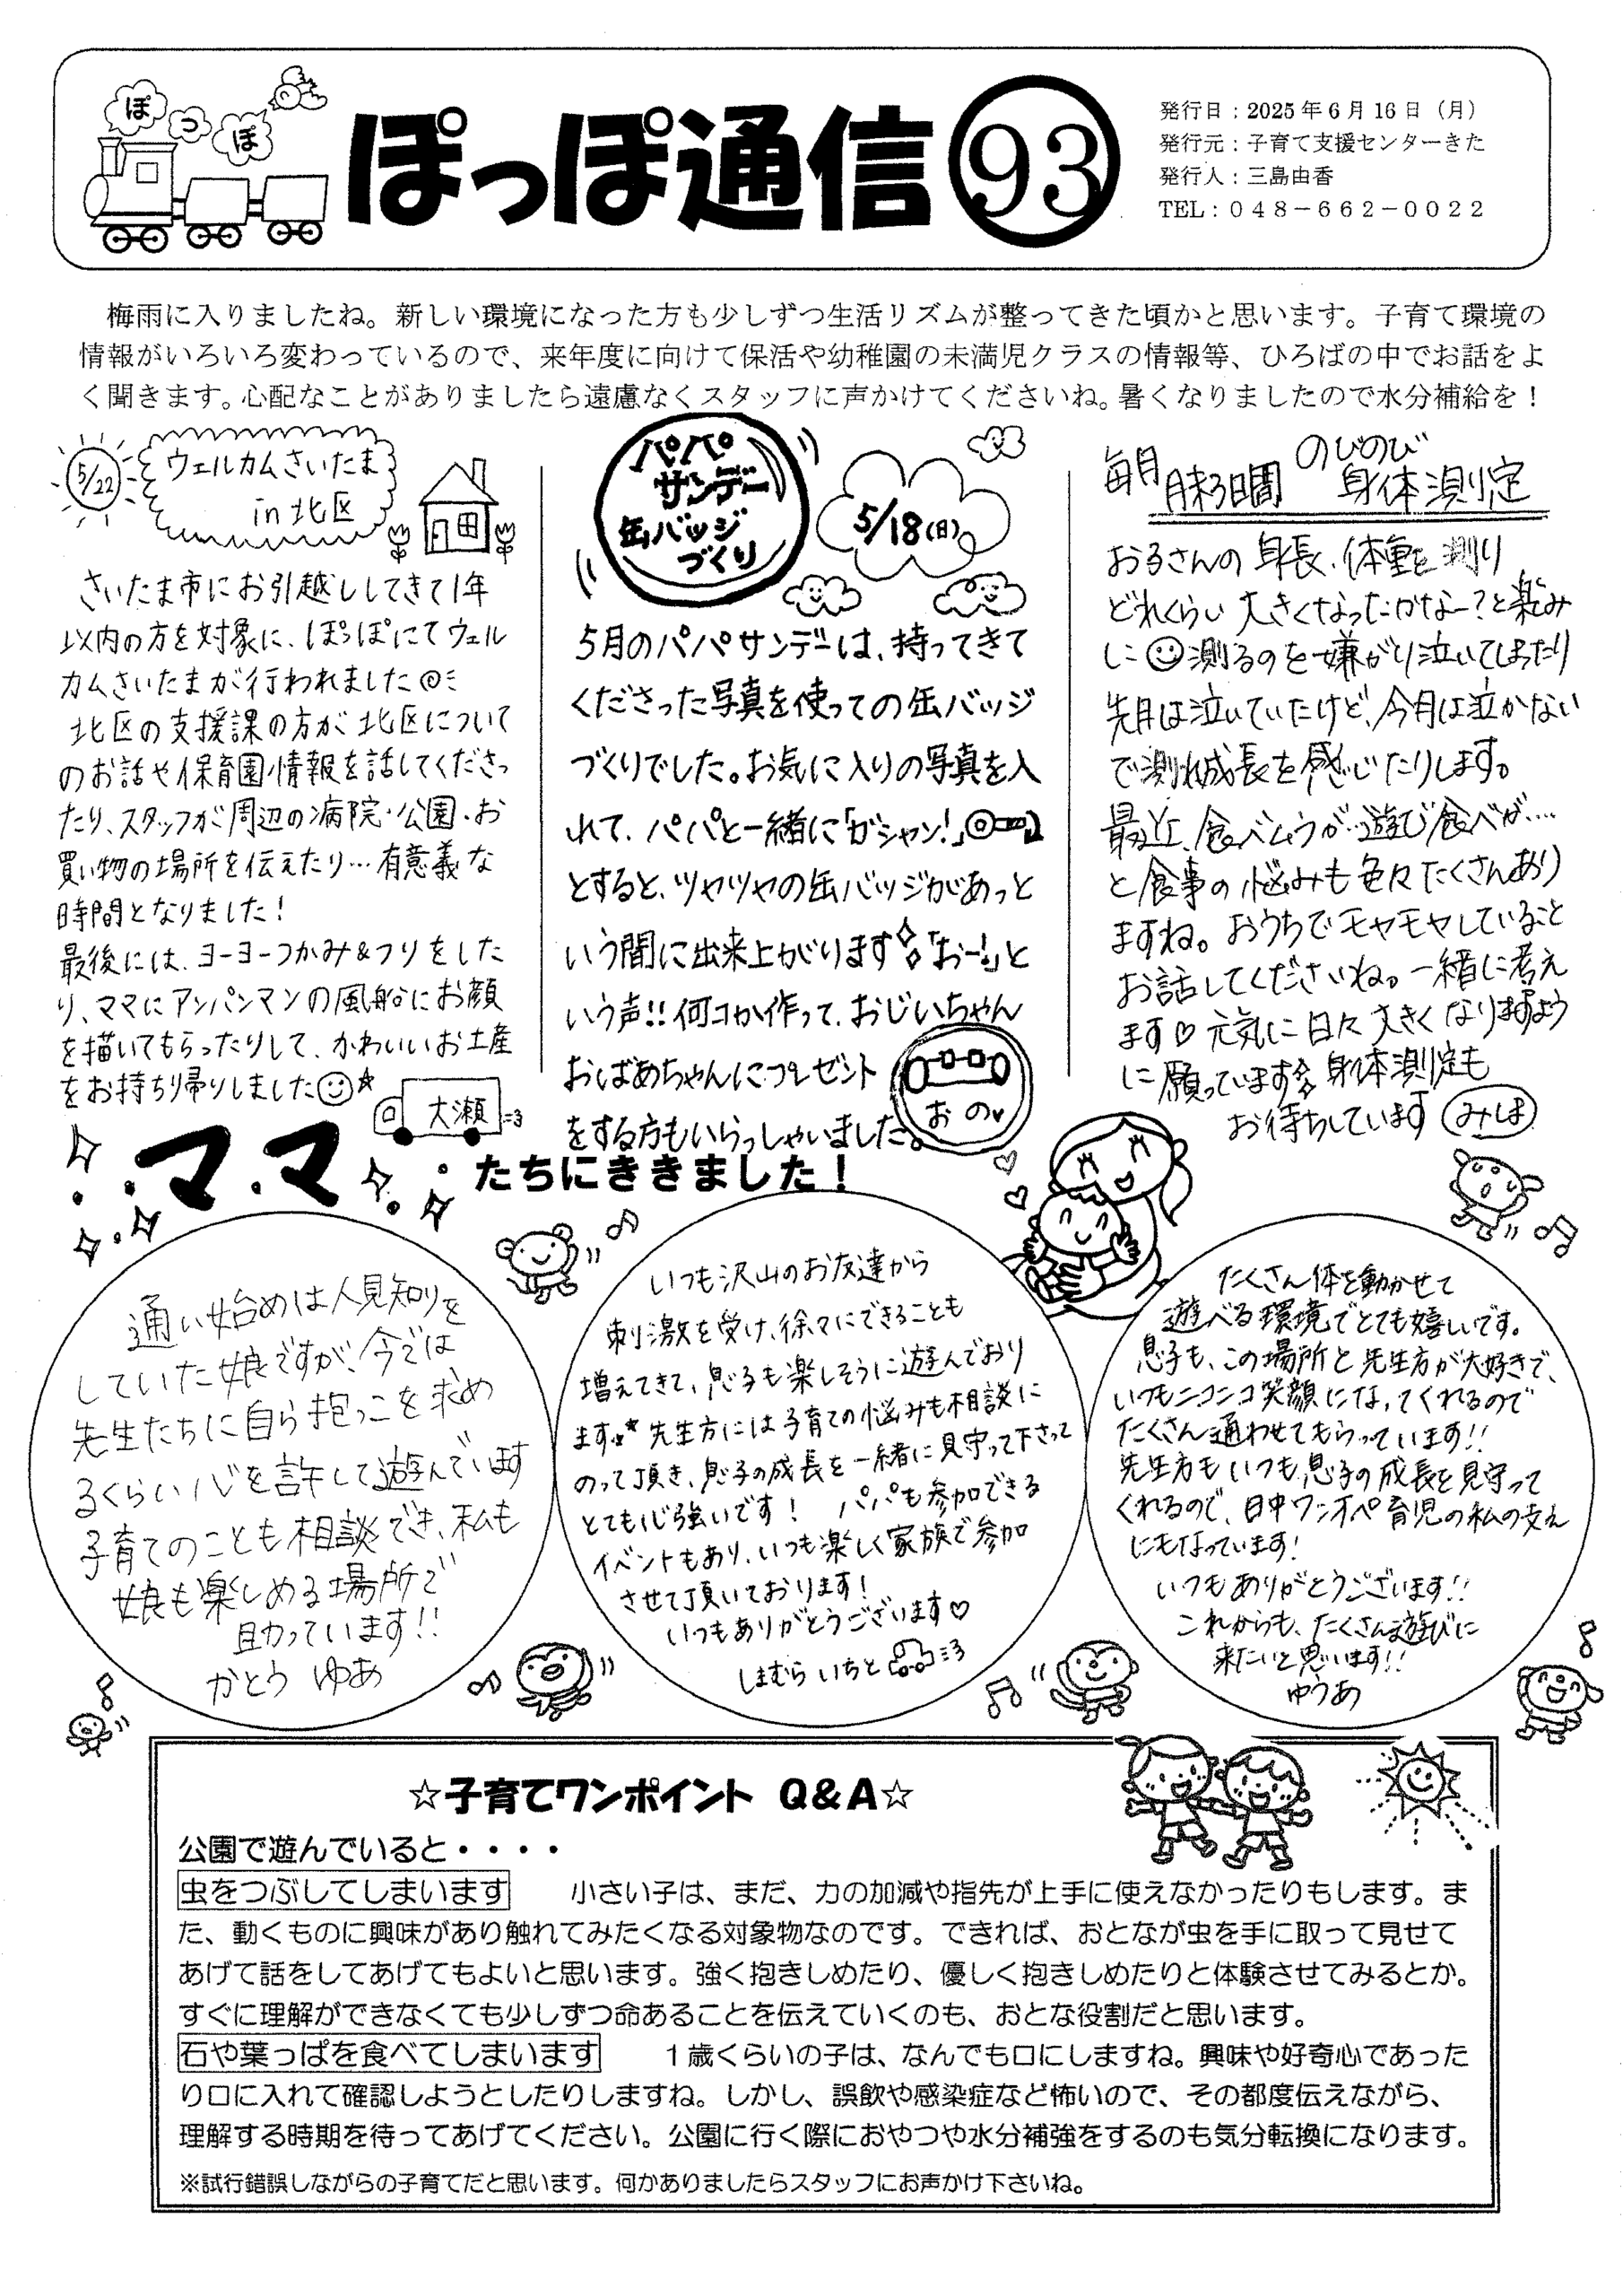 ぽっぽ
ぽっぽ通信 93
発行日：2025年6月16日（月）
発行元：子育て支援センターきた
発行人：三島由香
TEL：０４８－６６２－００２２
梅雨に入りましたね。新しい環境になった方も少しずつ生活リズムが整ってきた頃かと思います。子育て環境の
情報がいろいろ変わっているので、来年度に向けて保活や幼稚園の未満児クラスの情報等、ひろばの中でお話をよ
く聞きます。心配なことがありましたら遠慮なくスタッフに声かけてくださいね。暑くなりましたので水分補給を！
5/22
ウェルカムさいたま
in 北区
さいたま市にお引越ししてきて1年
以内の方を対象に、ぽっぽにてウェル
カムさいたまが行われました
北区の支援課の方が北区について
のお話や保育園情報を話してくださっ
たり、スタッフが周辺の病院・公園・お
買い物の場所を伝えたり…有意義な
時間となりました！
最後には、ヨーヨーつかみ&フリをした
り、ママにアンパンマンの風船にお顔
を描いてもらったりして、かわいいお土産
をお持ち帰りしました☺☆
大瀬
パパ
サンデー
缶バッジ
づくり
5/18(日)
5月のパパサンデーは、持ってきて
くださった写真を使っての缶バッジ
づくりでした。お気に入りの写真を入
れて、パパと一緒に「ガシャン！」
とすると、ツヤツヤの缶バッジがあっと
いう間に出来上がります「おー！」と
いう声!! 何コか作って、おじいちゃん
おばあちゃんにプレゼント
をする方もいらっしゃいました。
おの♥
毎月 月末3日間 のびのび
身体測定
お子さんの身長、体重を測り
どれくらい大きくなったかなー？と楽しみ
に☺測るのを嫌がり泣いてしまったり
先月は泣いていたけど、今月は泣かない
で測れ成長を感じたりします。
最近、食べムラが…遊び食べが…
と食事の悩みも色々たくさんあり
ますね。おうちでモヤモヤしていること
お話してくださいね。一緒に考え
ます♡元気に日々大きくなりますよう
に願っています 身体測定も
お待ちしています みしま
ママたちにききました！
通い始めは人見知りを
していた娘ですが、今では
先生たちに自ら抱っこを求め
るくらい心を許して遊んでいます
子育てのことも相談でき、私も
娘も楽しめる場所で
助かっています!!
かとう ゆあ
いつも沢山のお友達から
刺激を受け、徐々にできることも
増えてきて、息子も楽しそうに遊んでおり
ます。先生方には子育ての悩みも相談に
のって頂き、息子の成長を一緒に見守って下さって
とても心強いです！ パパも参加できる
イベントもあり、いつも楽しく家族で参加
させて頂いております！
いつもありがとうございます♡
しまむら いちと
たくさん体を動かせて
遊べる環境でとても嬉しいです。
息子も、この場所と先生方が大好きで、
いつもニコニコ笑顔になってくれるので
たくさん通わせてもらっています!!
先生方もいつも息子の成長を見守って
くれるので、日中ワンオペ育児の私の支え
にもなっています！
いつもありがとうございます!!
これからも、たくさん遊びに
来たいと思います!!
ゆうあ
☆子育てワンポイント Q＆A☆
公園で遊んでいると・・・・
虫をつぶしてしまいます　小さい子は、まだ、力の加減や指先が上手に使えなかったりもします。ま
た、動くものに興味があり触れてみたくなる対象物なのです。できれば、おとなが虫を手に取って見せて
あげて話をしてあげてもよいと思います。強く抱きしめたり、優しく抱きしめたりと体験させてみるとか。
すぐに理解ができなくても少しずつ命あることを伝えていくのも、おとな役割だと思います。
石や葉っぱを食べてしまいます　１歳くらいの子は、なんでも口にしますね。興味や好奇心であった
り口に入れて確認しようとしたりしますね。しかし、誤飲や感染症など怖いので、その都度伝えながら、
理解する時期を待ってあげてください。公園に行く際におやつや水分補強をするのも気分転換になります。
※試行錯誤しながらの子育てだと思います。何かありましたらスタッフにお声かけ下さいね。